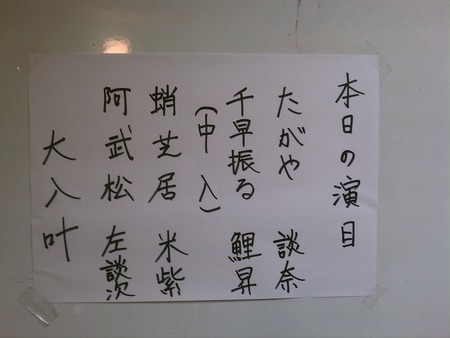 本日の演目
たがや 談奈
千早振る 鯉昇
(中入)
蛸芝居 米紫
阿武松 左談次
大入叶